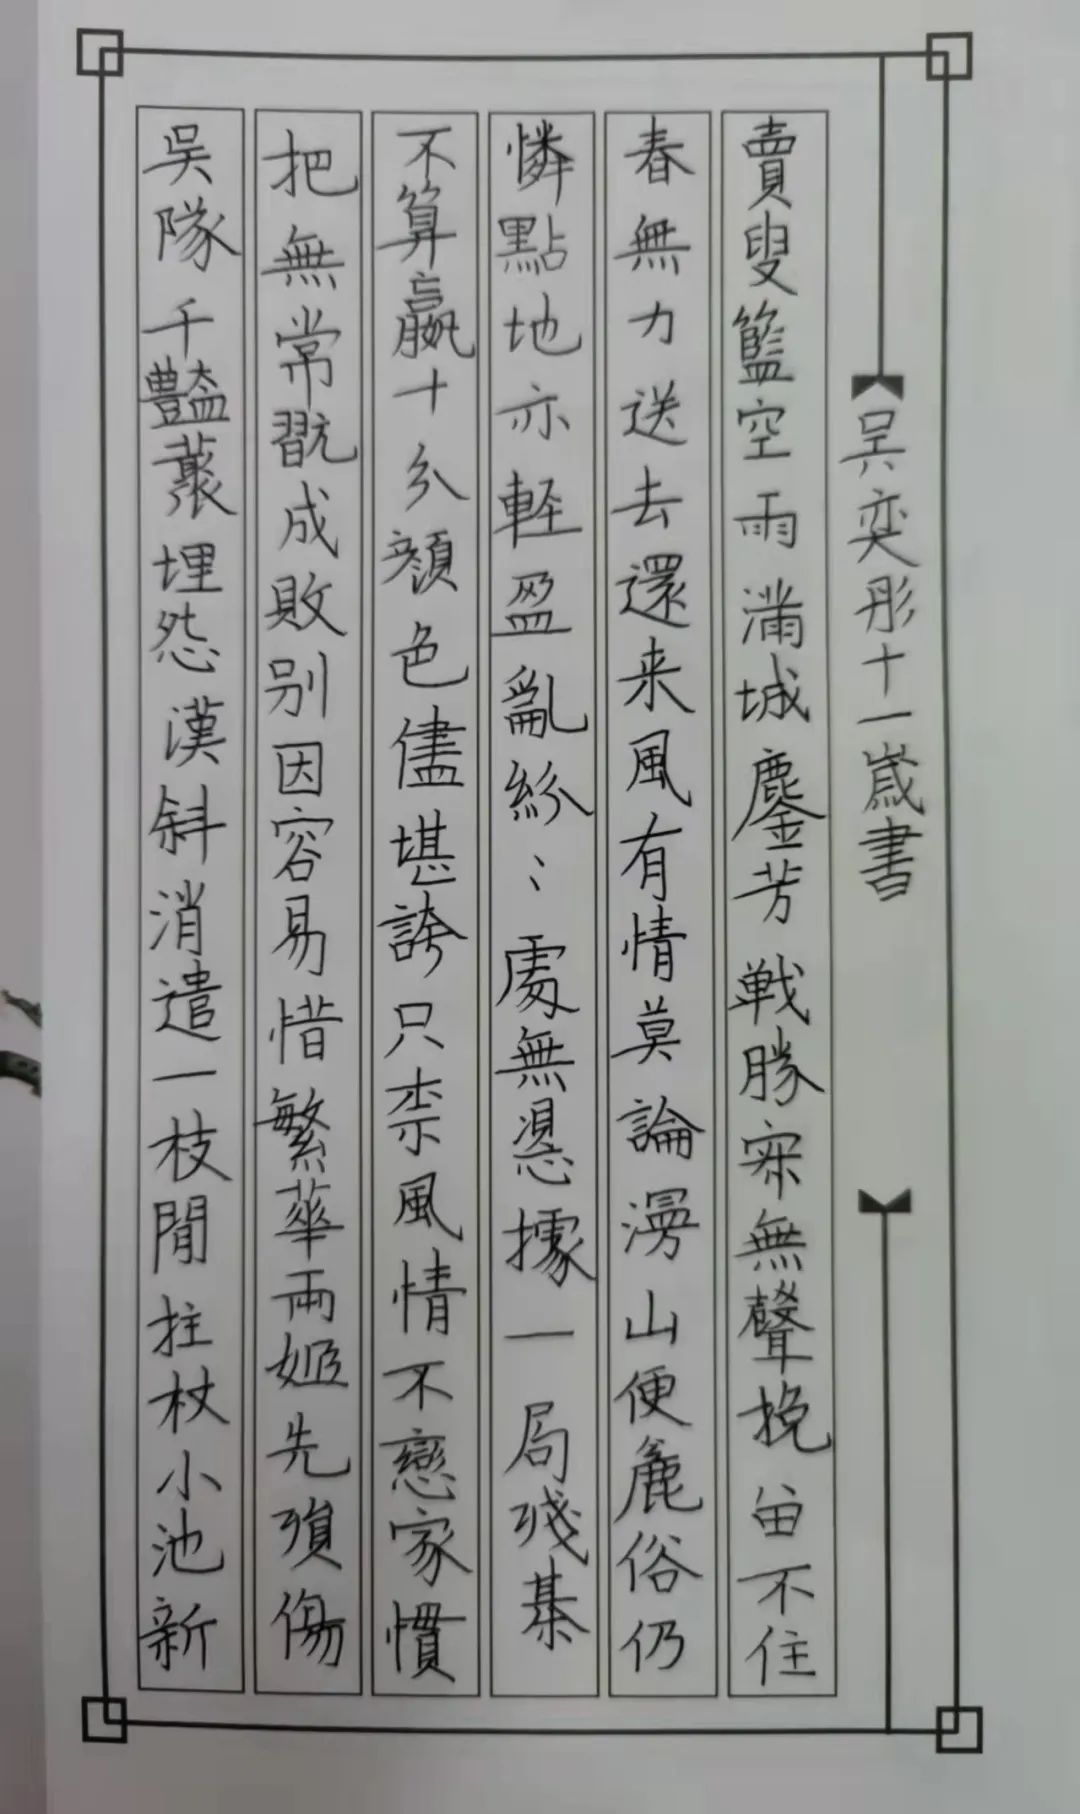 吴奕彤十一歲書
賣叟籃空雨滿城鏖芳戰勝寂無聲挽留不住
春無力送去還来風有情莫論漫山便麁俗仍
憐點地亦輕盈亂紛〻處無憑據一局殘棊
不算贏十分顔色儘堪誇只柰風情不戀家慣
把無常翫成敗别因容易惜繁華兩姬先殞傷
吳隊千豔叢埋怨漢斜消遣一枝閒拄杖小池新